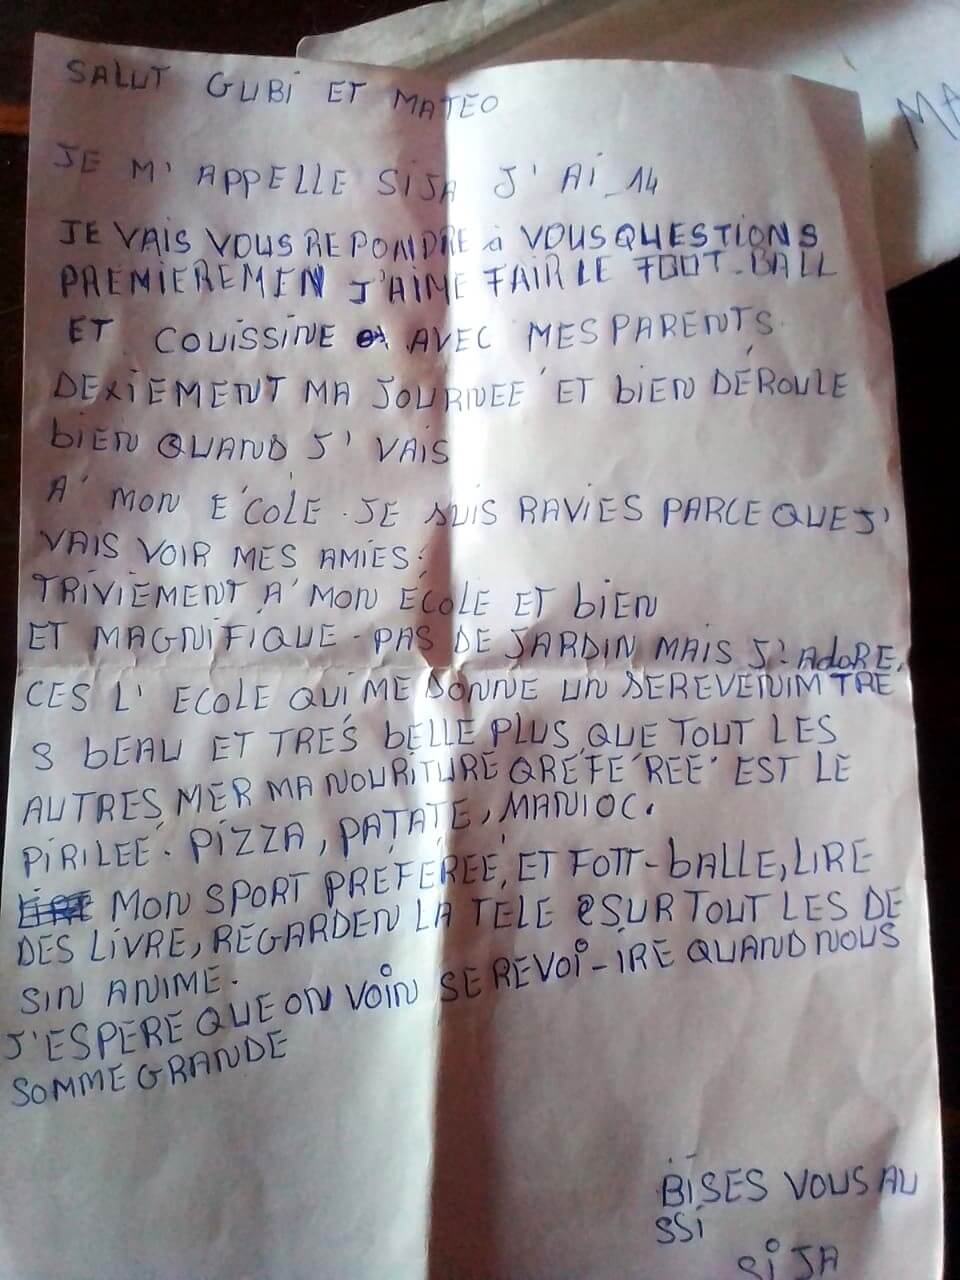 SALUT GUBI ET MATEO
JE M' APPELLE SIJA J' AI 14
JE VAIS VOUS REPONDRE à VOUS QUESTIONS
PREMIEREMEN J'AIME FAIR LE FOOT-BALL
ET COUISSINE AVEC MES PARENTS.
DEXIEMENT MA JOURNEE ET bIEN DÉROULE
bIEN QUAND J' VAIS
A' MON E'COLE. JE SUIS RAVIES PARCE QUE J'
VAIS VOIR MES AMIES.
TRIVIEMENT A' MON ÉCOLE ET bIEN
ET MAGNIFIQUE. PAS DE JARDIN MAIS J' AdoRE.
CES L' ECOLE QUI ME DONNE UN SEREVENIM TRE
S bEAU ET TRES bELLE PLUS QUE TOUT LES
AUTRES MER MA NOURITURE QREFE'REE' EST LE
PIRILEE. PIZZA, PATATE, MANIOC.
MON SPORT PREFEREE, ET FOTT-bALLE, LIRE
DES LIVRE, REGARDEN LA TELE SURTOUT LES DE
SIN ANIME.
J'ESPERE QUE ON VOIN SE REVOI-IRE QUAND NOUS
SOMME GRANDE
BISES VOUS AU
SSI
SIJA
MA